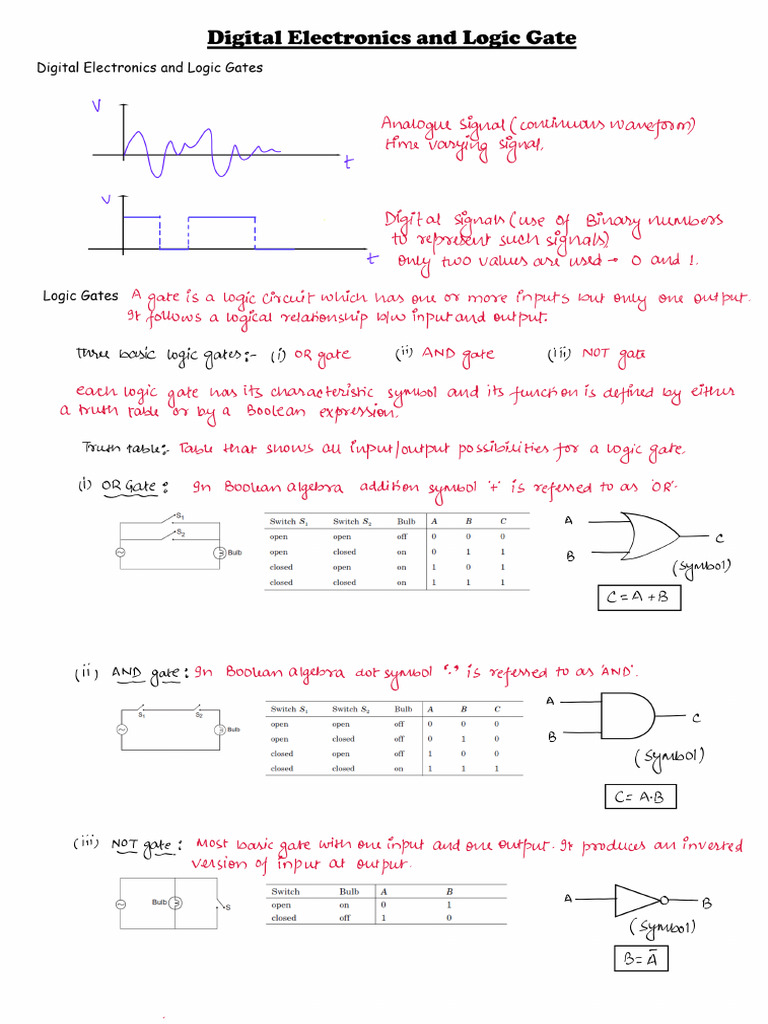 Digital Electronics and Logic Gate
Digital Electronics and Logic Gates
V
t
Analogue signal (continuous waveform)
time varying signal.
V
t
Digital signals (use of Binary numbers
to represent such signals)
only two values are used → 0 and 1.
Logic Gates A gate is a logic circuit which has one or more inputs but only one output.
It follows a logical relationship b/w input and output.
Three basic logic gates:- (i) OR gate (ii) AND gate (iii) NOT gate
each logic gate has its characteristic symbol and its function is defined by either
a truth table or by a Boolean expression.
Truth table:- Table that shows all input/output possibilities for a logic gate.
(i) OR Gate: In Boolean algebra addition symbol '+' is referred to as 'OR'.
S1
S2
Bulb
Switch S1 Switch S2 Bulb A B C
open open off 0 0 0
open closed on 0 1 1
closed open on 1 0 1
closed closed on 1 1 1
A
B
C
(symbol)
C = A + B
(ii) AND gate: In Boolean algebra dot symbol '.' is referred to as 'AND'.
S1 S2
Bulb
Switch S1 Switch S2 Bulb A B C
open open off 0 0 0
open closed off 0 1 0
closed open off 1 0 0
closed closed on 1 1 1
A
B
C
(symbol)
C = A·B
(iii) NOT gate: Most basic gate with one input and one output. It produces an inverted
version of input at output.
Bulb
S
Switch Bulb A B
open on 0 1
closed off 1 0
A B
(symbol)
B = Ā